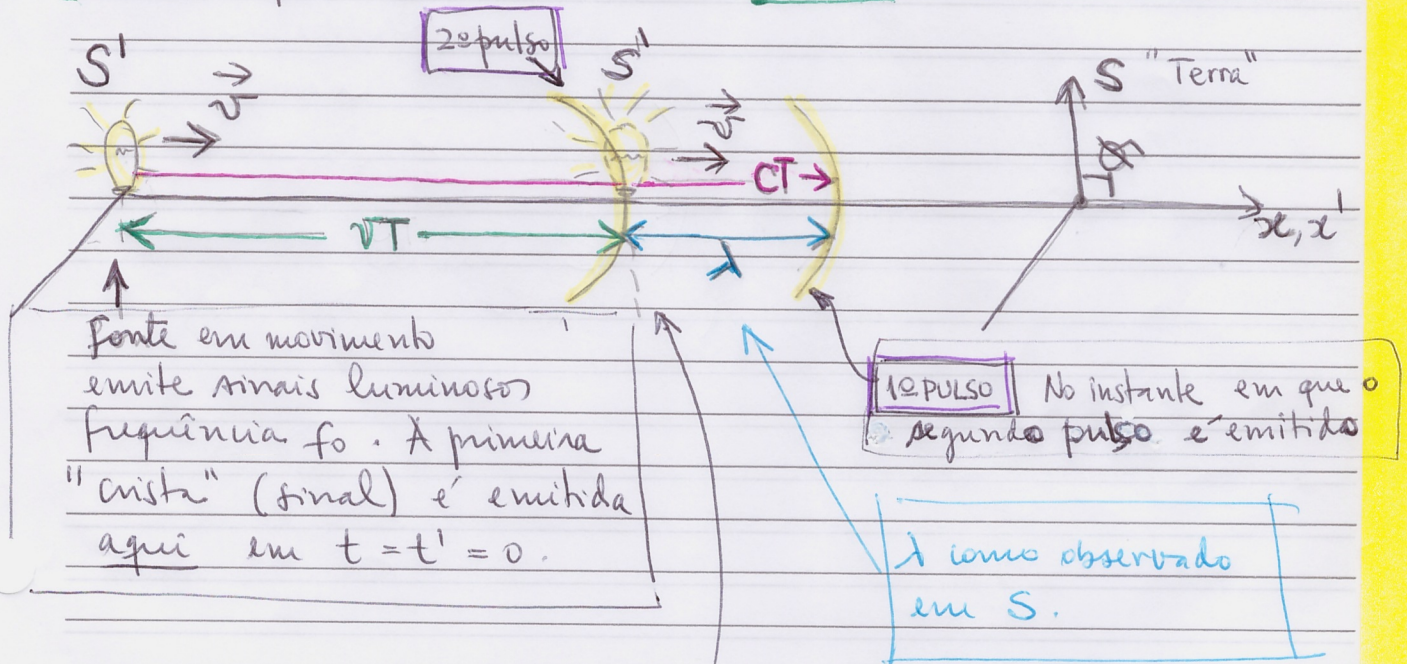 2º pulso
S'
S'
S "Terra"
v
v
cT
vT
λ
x, x'
Fonte em movimento
emite sinais luminosos
frequência f0. A primeira
"crista" (sinal) é emitida
aqui em t = t' = 0.
1º PULSO No instante em que o
segundo pulso é emitido
λ como observado
em S.